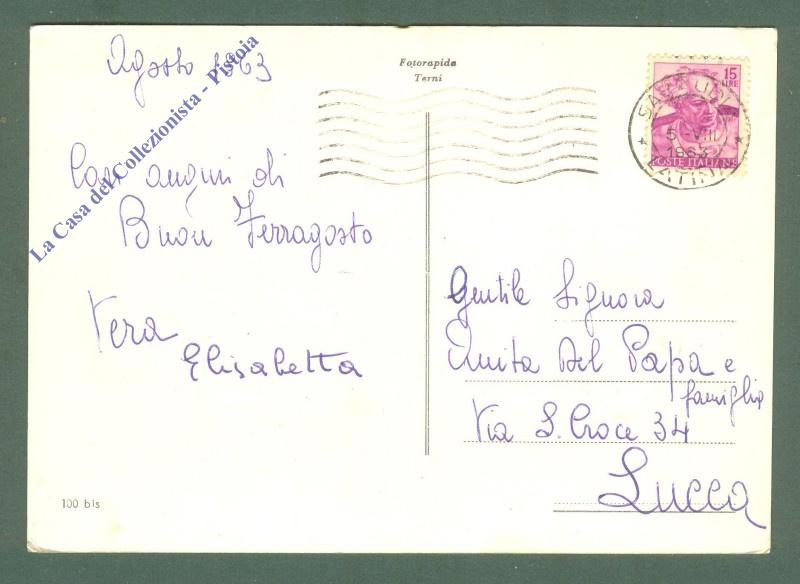 Agosto 1963
Fotorapida
Terni
15
LIRE
5 - VIII
1963
POSTE ITALIANE
La Casa del Collezionista - Pistoia
Cari auguri di
Buon Ferragosto
Vera
Elisabetta
Gentile Signora
Anita Del Papa e
famiglia
Via S. Croce 34
Lucca
100 bis